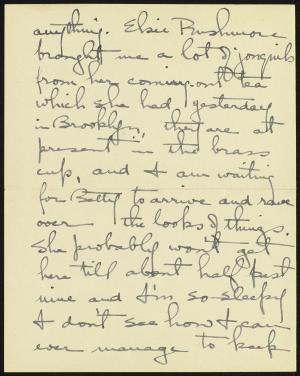 anything. Elsie Rushmore
brought me a lot of jonquils
from her coming-out tea
which she had yesterday
in Brooklyn, they are at
present in the brass
cup, and I am waiting
for Betty to arrive and rave
over the looks of things.
She probably won't get
here till about half past
nine and I'm so sleepy
I don't see how I can
ever manage to keep